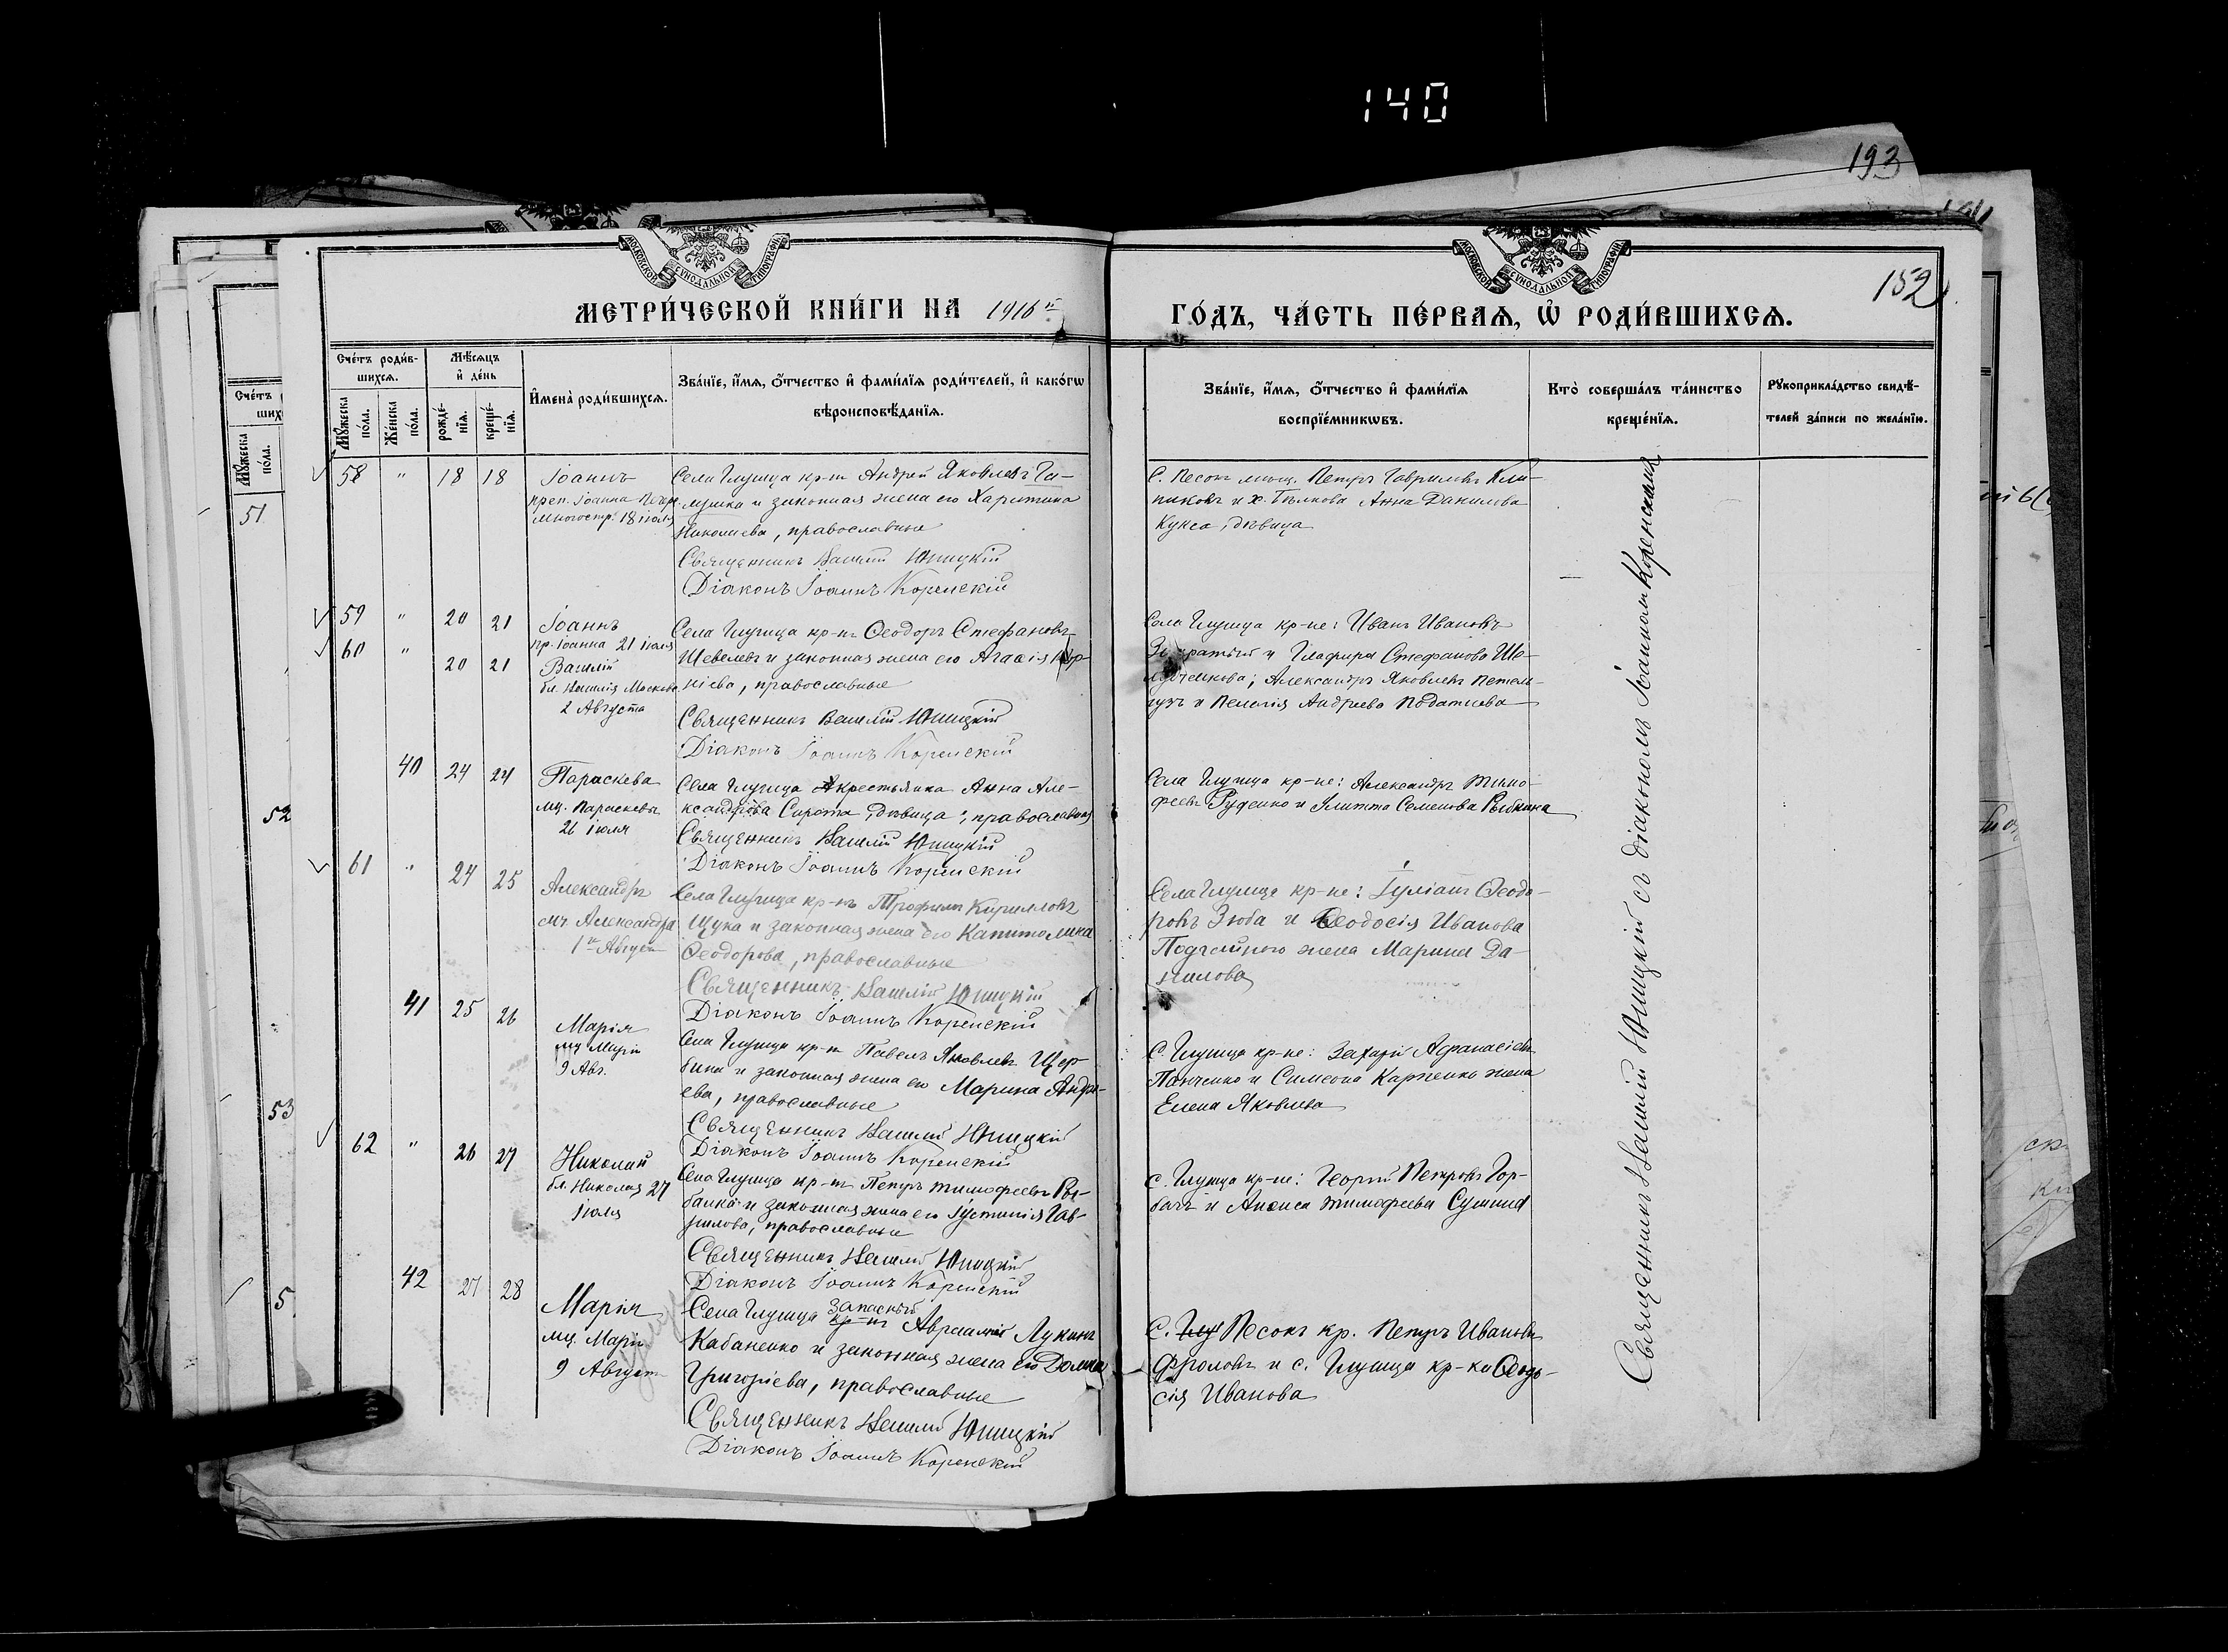 140
193
МОСКОВСКОЙ СѴНОДАЛЬНОЙ ТИПОГРАФІИ
МОСКОВСКОЙ СѴНОДАЛЬНОЙ ТИПОГРАФІИ
152
МЕТРИ́ЧЕСКОЙ КНИ́ГИ НА 1916й
ГО́ДЪ, ЧА́СТЬ ПЕ́РВАѦ, Ѡ҆ РОДИ́ВШИХСѦ.
Сче́тъ роди́в-
шихсѧ.
Мѣ́сѧцъ
и҆ де́нь
Мꙋ́жеска по́ла.
Же́нска по́ла.
рожде́-нїѧ.
креще́-нїѧ.
И҆мена̀ роди́вшихсѧ.
Зва́нїе, и҆́мѧ, ѻ҆́тчество и҆ фами́лїѧ роди́телей, и҆ како́гѡ
вѣроисповѣ́данїѧ.
Зва́нїе, и҆́мѧ, ѻ҆́тчество и҆ фами́лїѧ
воспрїе́мникѡвъ.
Кто̀ соверша́лъ та́инство
креще́нїѧ.
Рꙋкоприкла́дство свидѣ́-
телей за́писи по жела́нїю.
58 " 18 18 Іоаннъ
преп. Іоанна Печер.
многостр. 18 іюля
Села Глушца кр-нъ Андрей Яковлевъ
и законная жена его Харитина
Николаева, православные
Священникъ Василій Юницкій
Діаконъ Іоаннъ Коренскій
С. Песокъ мѣщ. Петръ Гавриловъ
и х. Бѣлкова Анна Данилова
Кукса, дѣвица
59 " 20 21 Іоаннъ
пр. Іоанна 21 іюля
60 " 20 21 Василій
бл. Василія Москов.
2 Августа
Села Глушца кр-нъ Ѳеодоръ Стефановъ
Шевелевъ и законная жена его Агаѳія Кор-
ніева, православные
Священникъ Василій Юницкій
Діаконъ Іоаннъ Коренскій
Села Глушца кр-не: Иванъ Ивановъ
и Глафира Стефанова Ше-
; Александръ Яковлевъ
и Пелагія Андреева
40 24 24 Параскева
мц. Параскевы
26 іюля
Села Глушца крестьянка Анна Але-
ксандрова Сирота, дѣвица, православная
Священникъ Василій Юницкій
Діаконъ Іоаннъ Коренскій
Села Глушца кр-не: Александръ Тимо-
феевъ Руденко и Семенова Рыбкина
61 " 24 25 Александръ
мч. Александра
1го Август
Села Глушца кр-нъ Трофимъ Кирилловъ
Щука и законная жена его Капитолина
Ѳеодорова, православные
Священникъ Василій Юницкій
Діаконъ Іоаннъ Коренскій
Села Глушца кр-не: Іуліанъ Ѳеодо-
ровъ Зюба и Ѳеодосія Иванова
жена Марина Да-
нилова
41 25 26 Марія
мц. Маріи
9 Авг.
Села Глушца кр-нъ Павелъ Яковлевъ Щер-
бина и законная жена его Марина Андре-
ева, православные
Священникъ Василій Юницкій
Діаконъ Іоаннъ Коренскій
С. Глушца кр-не: Захарій Аѳанасіевъ
Панченко и Симеона Карпенко жена
Елена Яковлева
62 " 26 27 Николай
бл. Николая 27
іюля
Села Глушца кр-нъ Петръ Тимофеевъ Ры-
балка и законная жена его Іустинія Гав-
рилова, православные
Священникъ Василій Юницкій
Діаконъ Іоаннъ Коренскій
С. Глушца кр-не: Георгій Петровъ Гор-
бачъ и Анисія Тимофеева
42 27 28 Марія
мц. Маріи
9 Август
Села Глушца запасный кр-нъ Авраамій Лукинъ
Кабаненко и законная жена его Домна
Григоріева, православные
Священникъ Василій Юницкій
Діаконъ Іоаннъ Коренскій
С. Песокъ кр. Петръ Ивановъ
Фроловъ и с. Глушца кр-ка Ѳеодо-
сія Иванова
Священникъ Василій Юницкій съ діакономъ Іоанномъ Коренскимъ
Сче́тъ
Мꙋ́жеска по́ла.
51
52
53
5